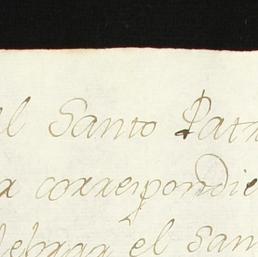 al Santo Patr
a correspondie
lebrar el San